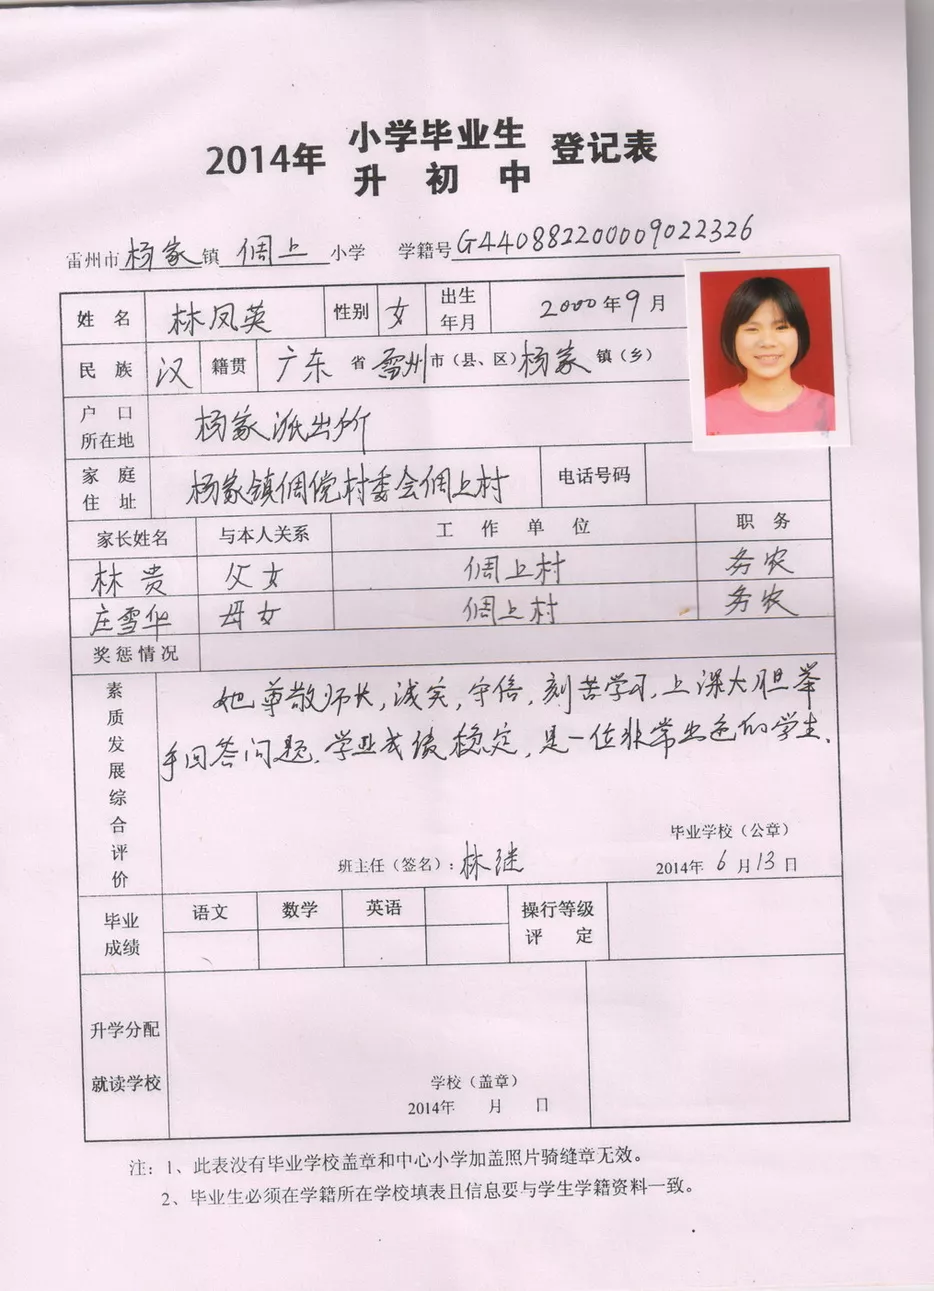 2014年 小学毕业生 登记表
升初中
雷州市杨家镇 倜上 小学 学籍号G440882200009022326
姓名 林凤英 性别 女 出生年月 2000年9月
民族 汉 籍贯 广东省雷州市(县、区)杨家镇(乡)
户口所在地 杨家派出所
家庭住址 杨家镇倜傥村委会倜上村 电话号码
家长姓名 与本人关系 工作单位 职务
林贵 父女 倜上村 务农
庄雪华 母女 倜上村 务农
奖惩情况
素质发展综合评价
她尊敬师长,诚实,守信,刻苦学习,上课大胆举
手回答问题.学业成绩稳定,是一位非常出色的学生.
毕业学校(公章)
班主任(签名):林继 2014年6月13日
毕业成绩 语文 数学 英语 操行等级评定
升学分配
就读学校
学校(盖章)
2014年 月 日
注:1、此表没有毕业学校盖章和中心小学加盖照片骑缝章无效。
2、毕业生必须在学籍所在学校填表且信息要与学生学籍资料一致。